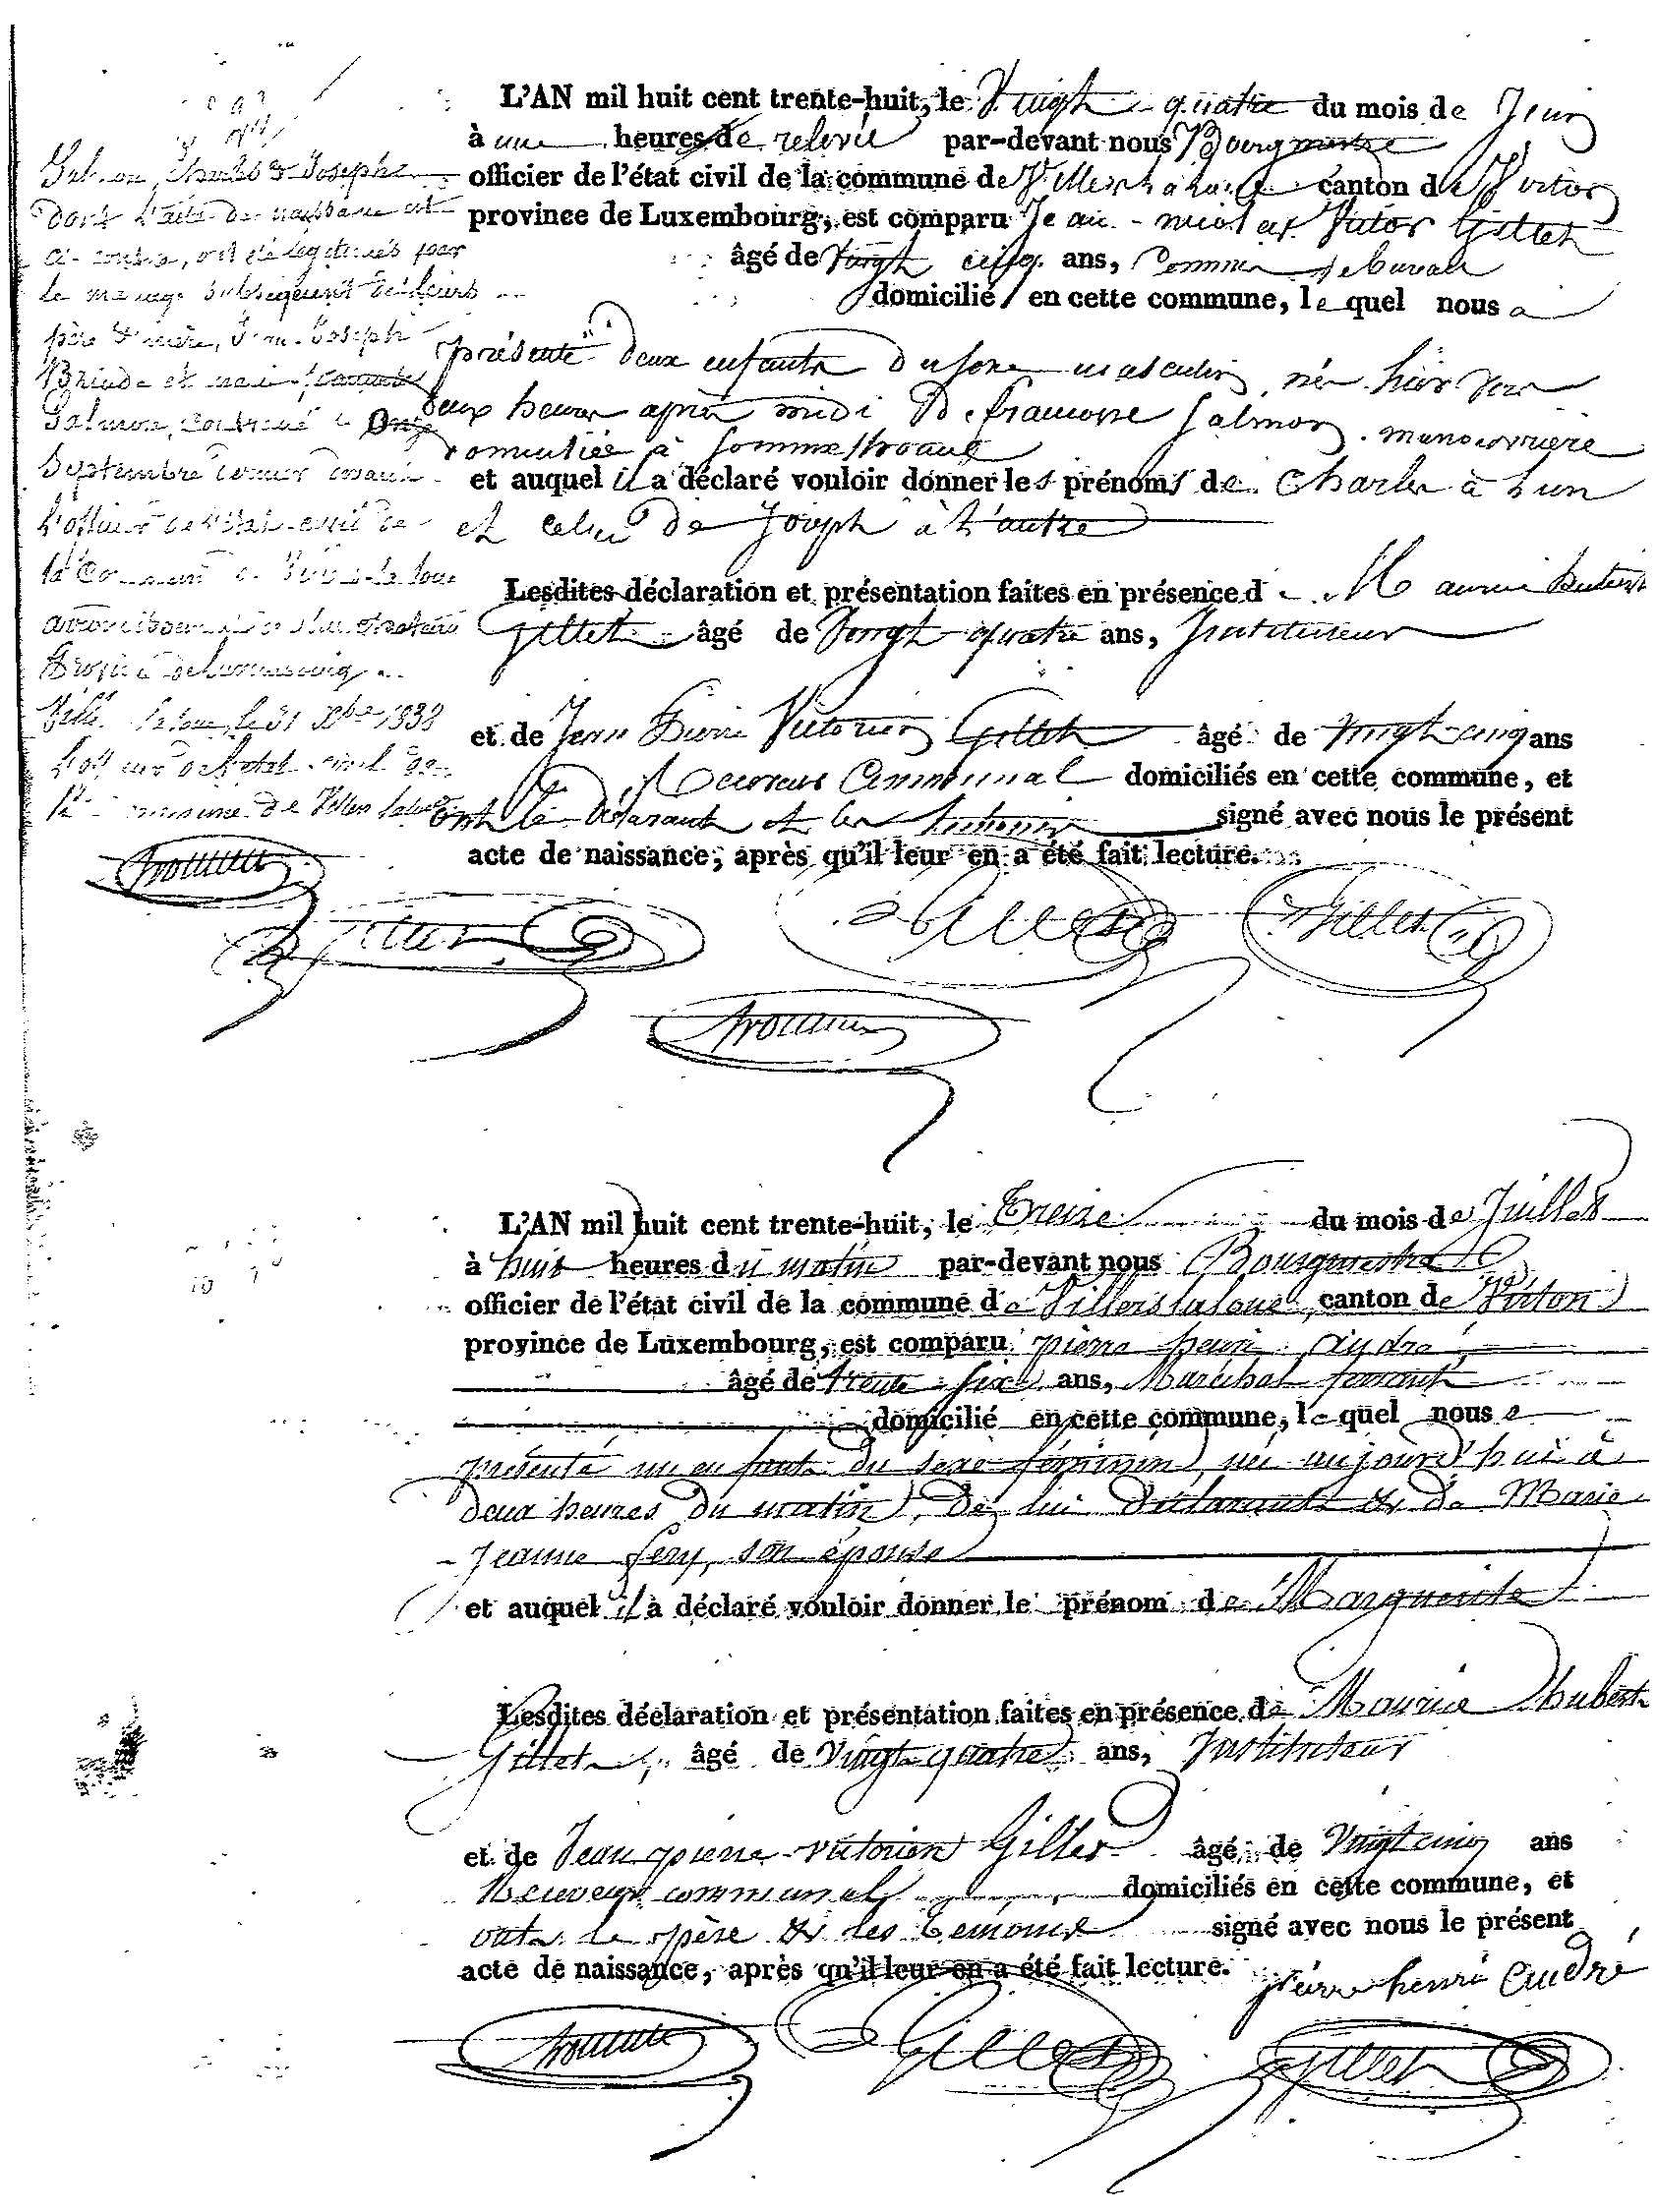 Salmon, Charles & Joseph
dont l'acte de naissance est
ci-contre, ont été légitimés par
le mariage subséquent de leurs
père & mère, Joseph
Briade et
Salmon, contracté le Onze
Septembre dernier devant
l'officier de l'état-civil de
la Commune de Villers-la-loue
arrondissement
de Luxembourg
Villers-la-loue, le 31 Xbre 1838
L'officier de l'état-civil de
la commune de Villers la loue
L'AN mil huit cent trente-huit, le Vingt-quatre du mois de Juin
à une heures de relevée par-devant nous Bourgmestre
officier de l'état civil de la commune de Villers la loue canton de Virton
province de Luxembourg, est comparu Jean-nicolas Victor Gillet
âgé de Vingt cinq ans, Commis de bureau
domicilié en cette commune, le quel nous a
présenté deux enfants du sexe masculin, nés hier vers
deux heures après midi De françoise Salmon, manouvrière
domiciliée à Sommethonne
et auquel il a déclaré vouloir donner les prénoms de Charles à l'un
et celui de Joseph à l'autre
Lesdites déclaration et présentation faites en présence de Maurice hubert
Gillet âgé de Vingt quatre ans, Instituteur
et de Jean Pierre Victorien Gillet âgé de Vingt-cinq ans
Receveur Communal domiciliés en cette commune, et
ont le Déclarant et les témoins signé avec nous le présent
acte de naissance, après qu'il leur en a été fait lecture.
Gillet Gillet Gillet
L'AN mil huit cent trente-huit, le Treize du mois de Juillet
à huit heures du matin par-devant nous Bourgmestre
officier de l'état civil de la commune de Villers la loue, canton de Virton
province de Luxembourg, est comparu pierre henri André
âgé de trente-six ans, Maréchal ferrant
domicilié en cette commune, le quel nous a
présenté un enfant du sexe féminin, né aujourd'hui à
deux heures du matin, de lui déclarant & de Marie
Jeanne fery, son épouse
et auquel il a déclaré vouloir donner le prénom de Marguerite
Lesdites déclaration et présentation faites en présence de Maurice hubert
Gillet, âgé de Vingt-quatre ans, Instituteur
et de Jean pierre victorien Gillet âgé de Vingt cinq ans
Receveur communal domiciliés en cette commune, et
ont le père & les témoins signé avec nous le présent
acte de naissance, après qu'il leur en a été fait lecture.
pierre henri André
Gillet Gillet